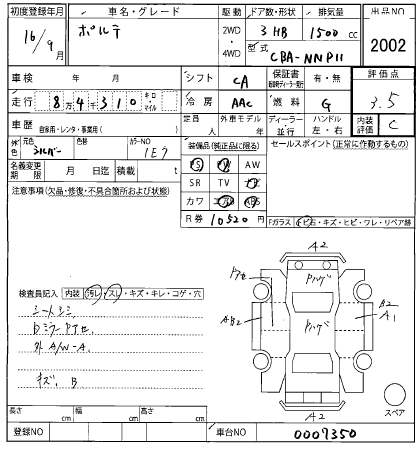 初度登録年月 車名・グレード 駆動 ドア数・形状 排気量 出品NO
16/9月 ポルテ 2WD・4WD 3 HB 1500 cc 2002
型式 CBA-NNP11
車検 年 月 シフト CA 保証書 有・無 評価点
走行 8万4千310 キロ・マイル 冷房 AAC 燃料 G 3.5
車歴 自家用・レンタ・事業用( ) 定員 人 外車モデル 年 ディーラー・並行 ハンドル 左・右 内装評価 C
外色 元色 シルバー 色替 カラーNO 1E7 装備品(純正品に限る) セールスポイント(正常に作動するもの)
名義変更期限 月 日迄 積載 t PS PW AW
注意事項(欠品・修復・不具合箇所および状態) SR TV ナビ
カワ エアB ABS
R券 10520円 Fガラス
キズ・ヒビ・ワレ・リペア跡
A2
アセ Pハゲ
検査員記入 内装 汚レ・スレ・キズ・キレ・コゲ・穴
シートシミ
Dミラーアセ
外A/W-A.
キズ. B
AB2 Pハゲ B2 A1
A2
スペア
長さ cm 幅 cm 高さ cm
登録NO 車台NO 0007350